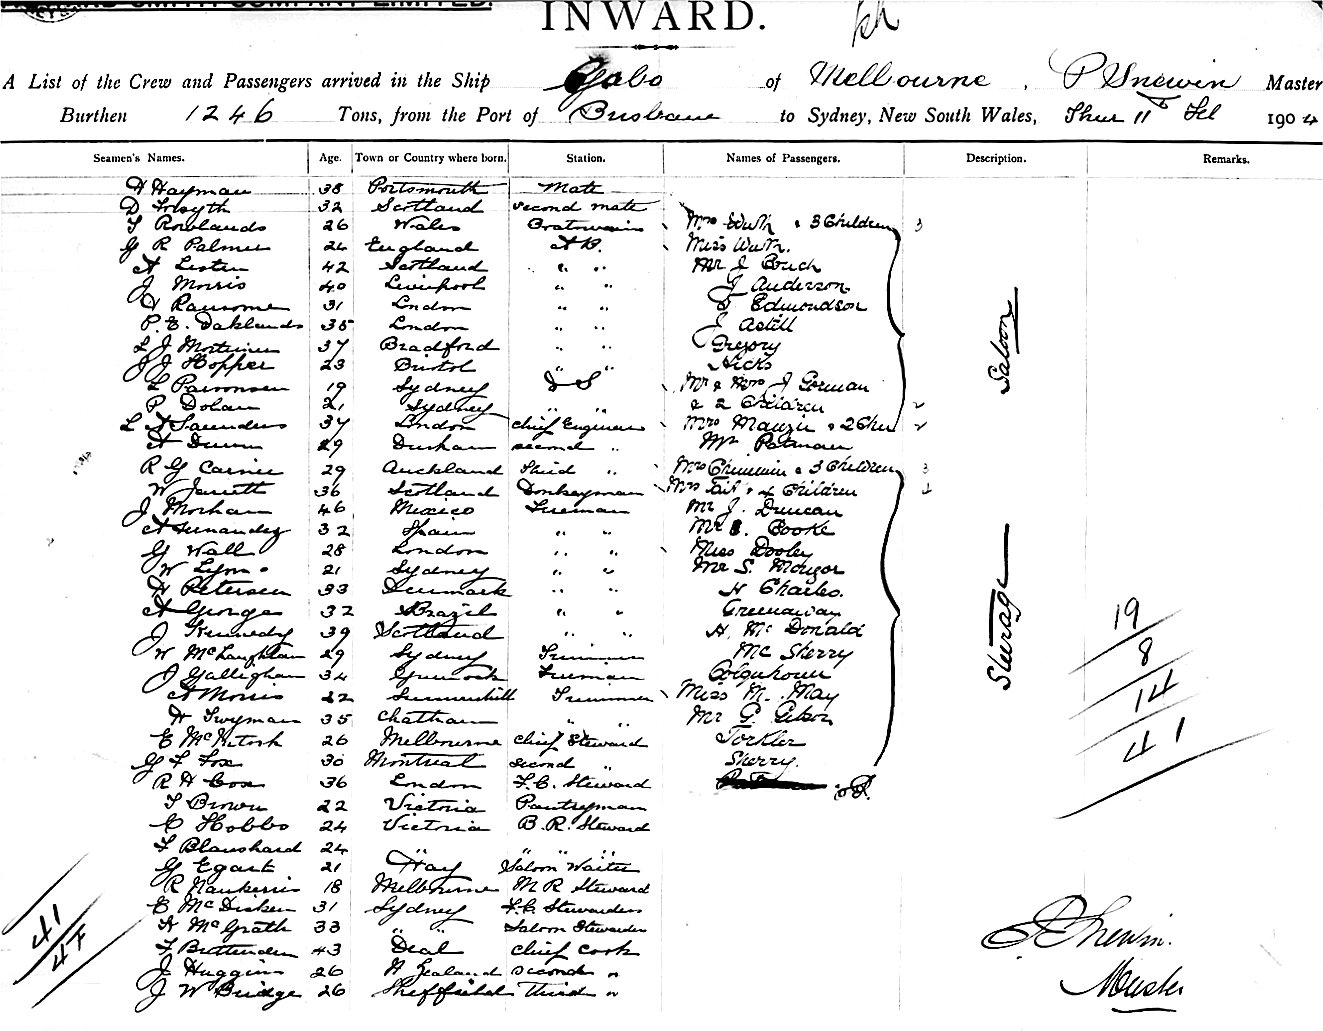 SMITH COMPANY LIMITED.
INWARD.
A List of the Crew and Passengers arrived in the Ship Gabo of Melbourne, P Snewin Master
Burthen 1246 Tons, from the Port of Brisbane to Sydney, New South Wales, Thur 11th Feb 1904
Seamen's Names. Age. Town or Country where born. Station. Names of Passengers. Description. Remarks.
H Hayman 38 Portsmouth Mate
D Forsyth 32 Scotland second mate
T Rowlands 26 Wales Boatswain Mrs & 3 Children 3
G R Palmer 24 England A B. Miss
A Lister 42 Scotland " " Mr J
J Morris 40 Liverpool " " J Anderson
H Ransome 31 London " " Edmondson
P. E. Oaklands 35 London " " J Astill
L J Mortimer 37 Bradford " " Gregory
J J Hopper 23 Bristol " " Hicks
19 Sydney O S Mr & Mrs J Gorman
P. Dolan 21 Sydney " " & 2 Children 2
L A Saunders 37 London chief Engineer Mrs & 2 Chn 2
A Dunn 29 Durham second " Mr
Saloon
R G 29 Auckland Third " Mrs & 3 Children 3
W Jarrett 36 Scotland Donkeyman Mrs & 4 Children
J 46 Mexico Fireman Mr J. Duncan
A Fernandez 32 Spain " " Mr Cooke
G Wall 28 London " " Miss Dooley
W Lyons 21 Sydney " " Mr S.
H Petersen 33 Denmark " " H Charles.
A George 32 Brazil " " Greenaway
J Kennedy 39 Scotland " " H. McDonald
W McLaughlan 29 Sydney Trimmer McSherry
J Gallighan 34 Greenock Fireman Colquhoun
A Morris 22 Summerhill Trimmer Miss M. May
H Twyman 35 Chatham " " Mr G.
E McKitosh 26 Melbourne chief Steward
G F Fox 30 Montreal second " Sherry.
Steerage
19
8
14
41
R H Cox 36 London F. C. Steward
T Brown 22 Victoria Pantryman
C Hobbs 24 Victoria B. R. Steward
F Blanshard 24 " " " "
G Egart 21 Hay Saloon Waiter
R 18 Melbourne M R Steward
E 31 Sydney F. C. Stewardess
H McGrath 33 " " Saloon Stewardess
F 43 Deal chief cook
J Huggins 26 N Zealand second "
J W Bridge 26 Sheffield third "
41
47
P Snewin.
Master